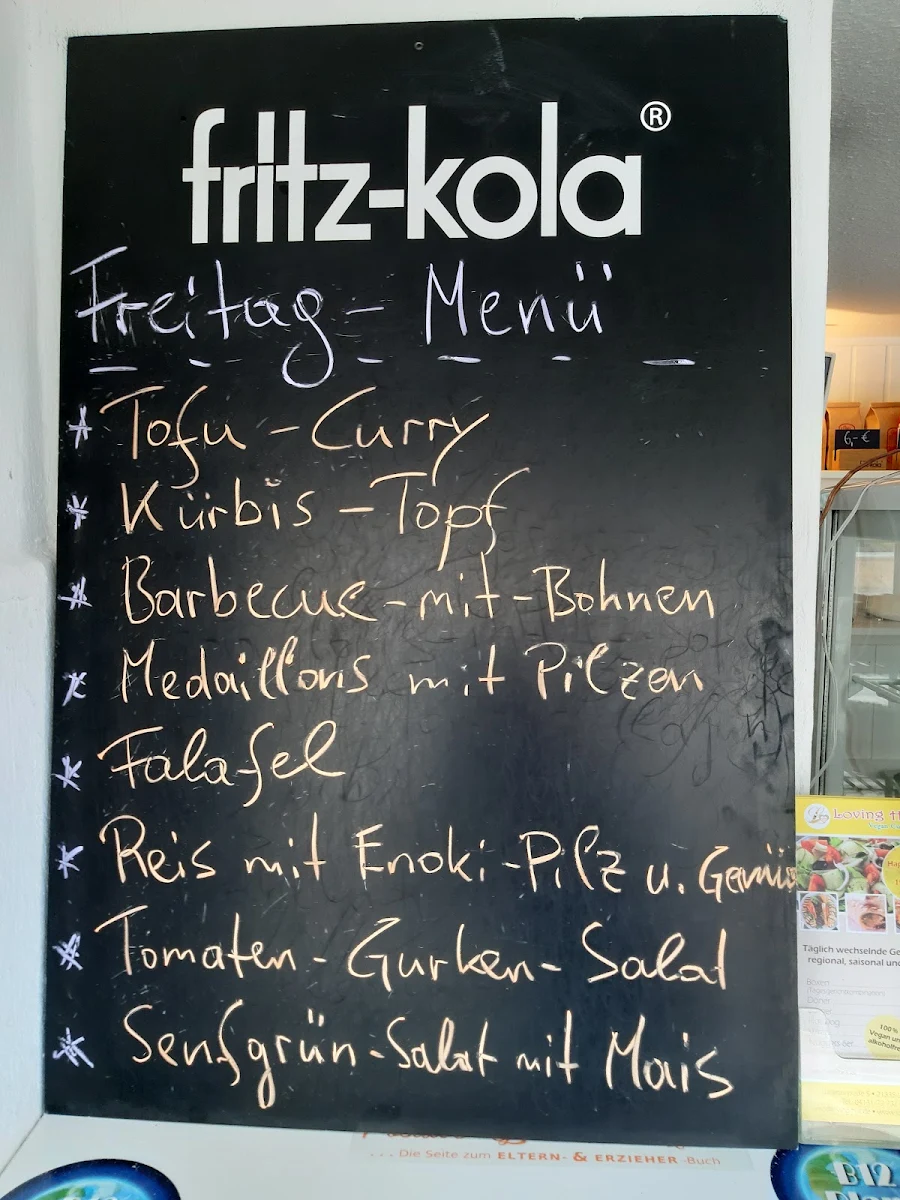 fritz-kola®
Freitag - Menü
* Tofu - Curry
* Kürbis - Topf
* Barbecue - mit - Bohnen
* Medaillons mit Pilzen
* Falafel
* Reis mit Enoki - Pilz u. Gemüs
* Tomaten - Gurken - Salat
* Senfgrün - Salat mit Mais
6,-€
Loving H
Täglich wechselnde Ge
regional, saisonal und
100%
Vegan un
alkoholfre
... Die Seite zum ELTERN- & ERZIEHER-Buch
B12